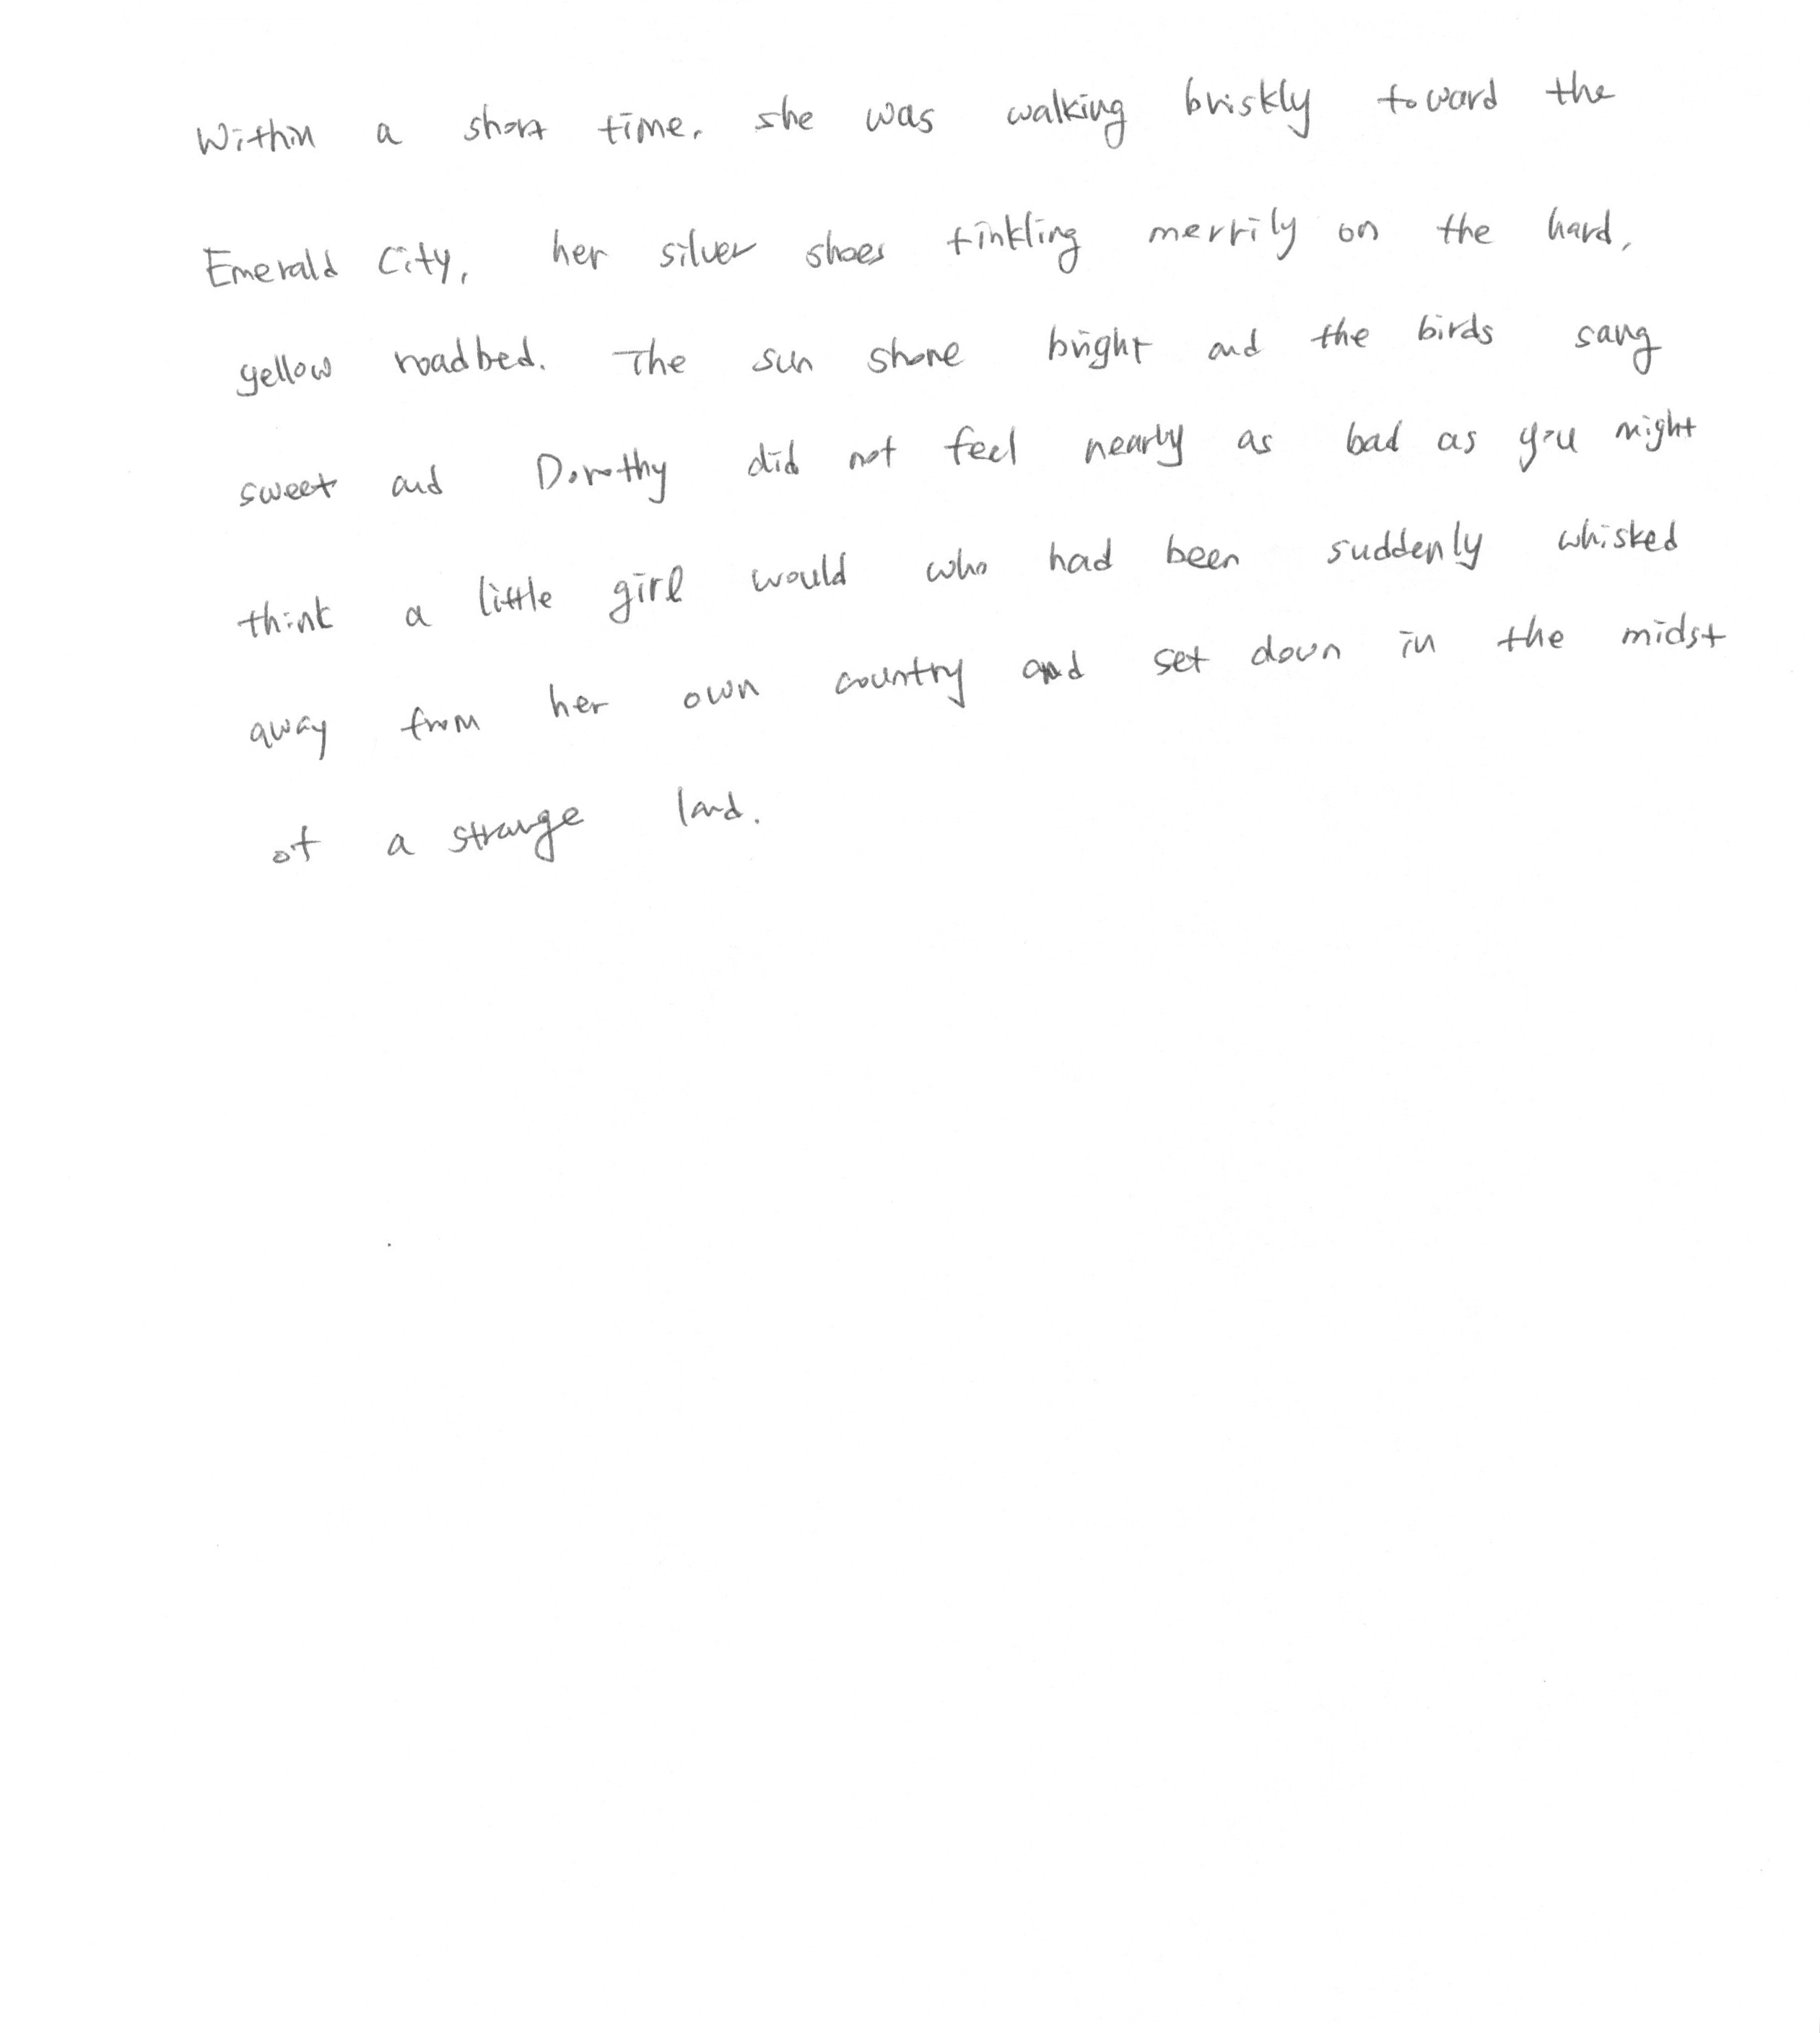 Within a short time, she was walking briskly toward the
Emerald City, her silver shoes tinkling merrily on the hard,
yellow roadbed. The sun shone bright and the birds sang
sweet and Dorothy did not feel nearly as bad as you might
think a little girl would who had been suddenly whisked
away from her own country and set down in the midst
of a strange land.